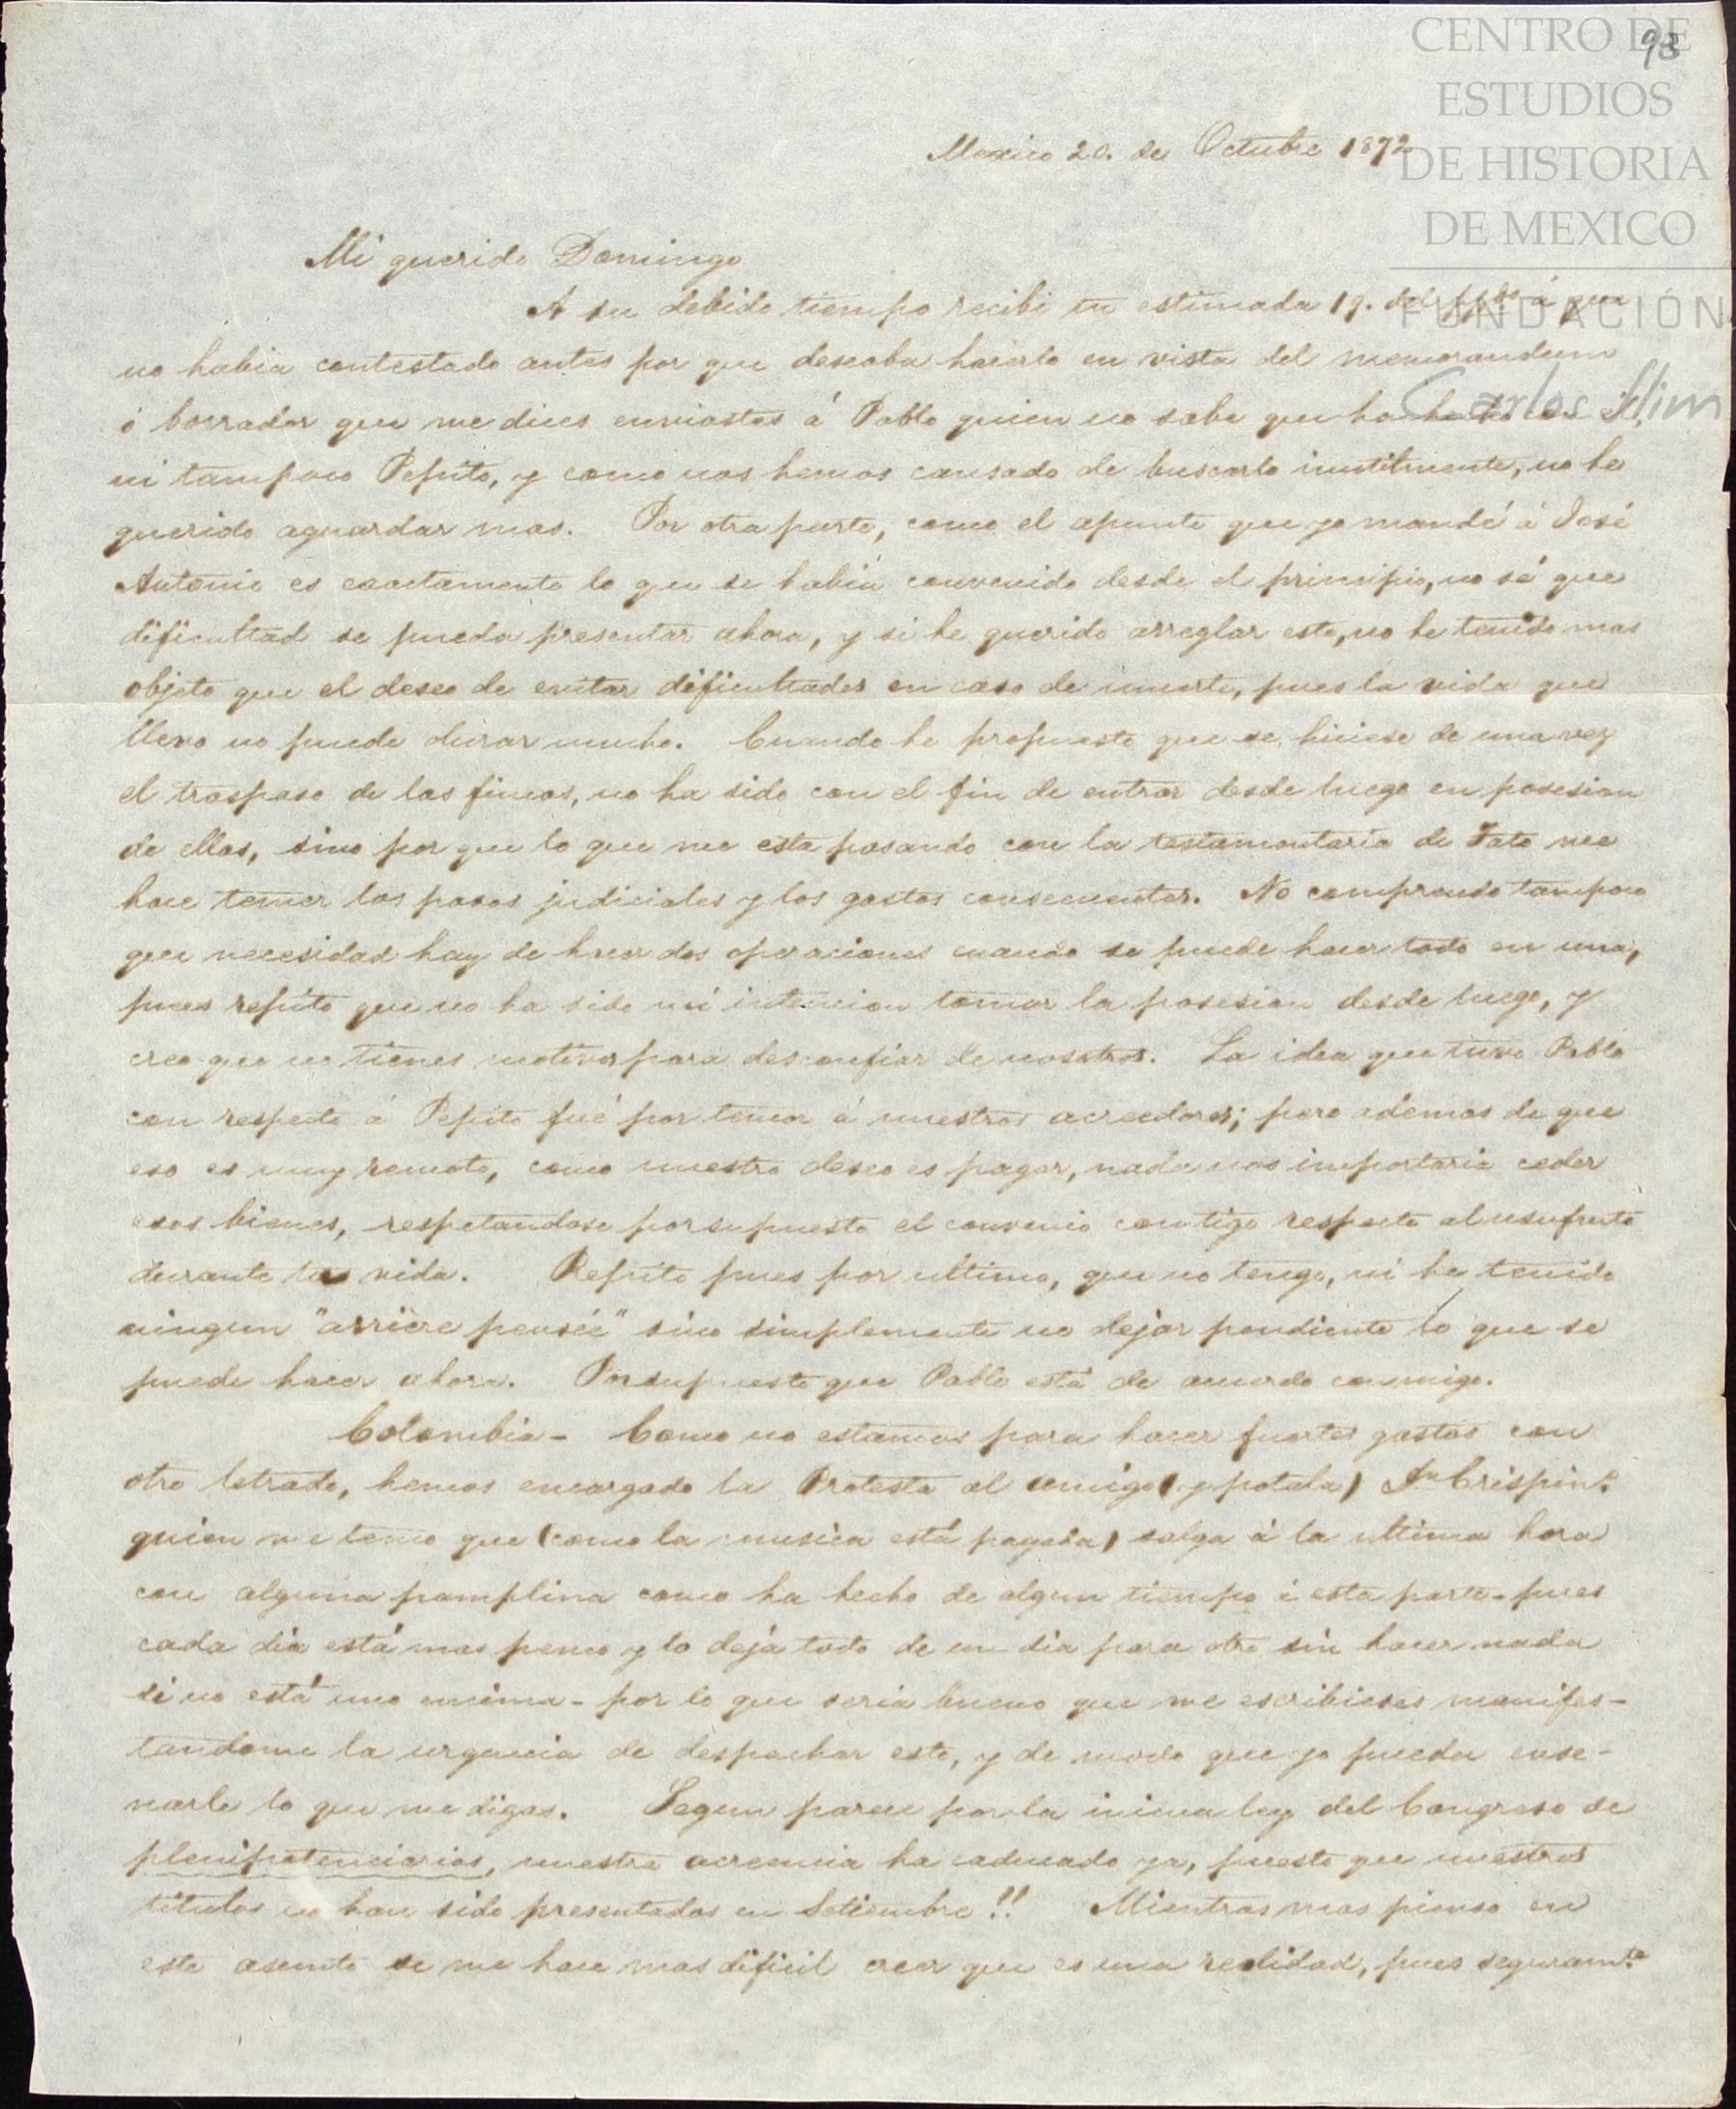 98
CENTRO DE
ESTUDIOS
DE HISTORIA
DE MEXICO
FUNDACIÓN
Carlos Slim
Mexico 20. de Octubre 1872
Mi querido Domingo
A su debido tiempo recibi tu estimada 19. del ppdo á que
no habia contestado antes por que deseaba hacerlo en vista del memorandum
ó borrador que me dices enviastes á Pablo quien no sabe que ha hecho con el,
ni tampoco Pepito, y como nos hemos cansado de buscarlo inutilmente, no he
querido aguardar mas. Por otra parte, como el apunte que yo mandé á José
Antonio es exactamente lo que se habia convenido desde el principio, no sé que
dificultad se pueda presentar ahora, y si he querido arreglar esto, no he tenido mas
objeto que el deseo de evitar dificultades en caso de muerte, pues la vida que
llevo no puede durar mucho. Cuando he propuesto que se hiciese de una vez
el traspaso de las fincas, no ha sido con el fin de entrar desde luego en posesion
de ellas, sino por que lo que me esta pasando con la testamentaria de Tato me
hace temer los pasos judiciales y los gastos consecuentes. No comprendo tampoco
que necesidad hay de hacer dos operaciones cuando se puede hacer todo en una,
pues repito que no ha sido mi intencion tomar la posesion desde luego, y
creo que no tienes motivos para desconfiar de nosotros. La idea que tuvo Pablo
con respecto á Pepito fué por temor á nuestros acreedores; pero ademas de que
eso es muy remoto, como nuestro deseo es pagar, nada nos importaria ceder
esos bienes, respetandose por supuesto el convenio contigo respecto al usufructo
durante tu vida. Repito pues por ultimo, que no tengo, ni he tenido
ningun "arrière pensée" sino simplemente no dejar pendiente lo que se
puede hacer ahora. Por supuesto que Pablo está de acuerdo conmigo.
Colombia - Como no estamos para hacer fuertes gastos con
otro letrado, hemos encargado la Protesta al amigo (y potala) Crispin.
quien me temo que (como la musica está pagada) salga á la ultima hora
con alguna pamplina como ha hecho de algun tiempo á esta parte - pues
cada dia está mas penco y lo deja todo de un dia para otro sin hacer nada
si no está uno encima - por lo que seria bueno que me escribieses manifes-
tandome la urgencia de despachar esto, y de modo que yo pueda ense-
narle lo que me digas. Segun parece por la inicua ley del Congreso de
plenipotenciarios, nuestra acreencia ha caducado ya, puesto que nuestros
titulos no han sido presentados en Setiembre!! Mientras mas pienso en
este asunto se me hace mas dificil creer que es una realidad, pues seguramte